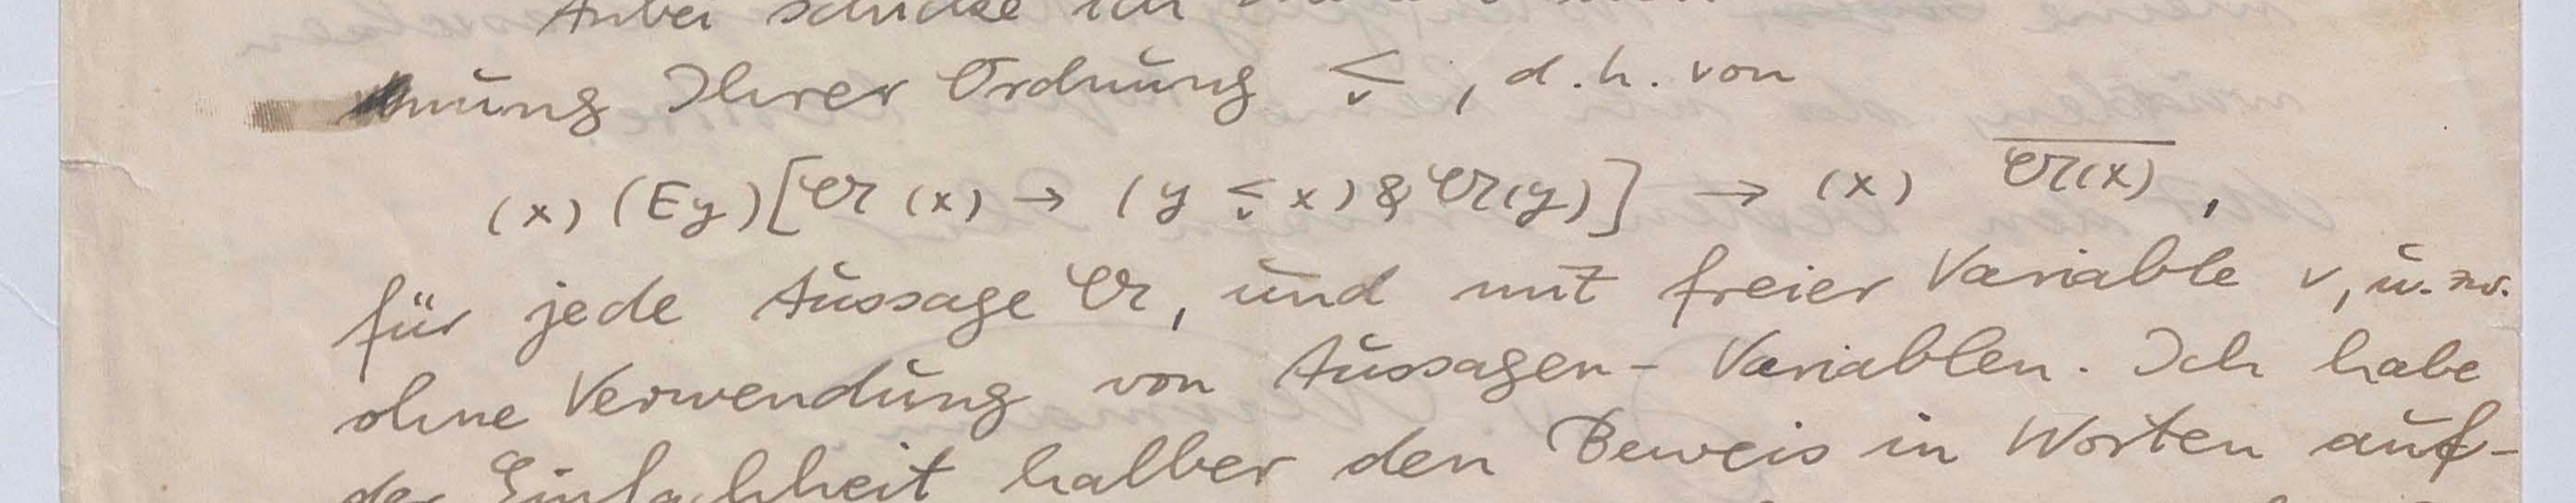 Anbei schicke ich
nung Ihrer Ordnung ≤ᵥ, d.h. von
(x) (Ey) [𝔄(x) → (y ≤ᵥ x) & 𝔄(y)] → (x) \overline{𝔄(x)},
für jede Aussage 𝔄, und mit freier Variable v, u. zw.
ohne Verwendung von Aussagen-Variablen. Ich habe
der Einfachheit halber den Beweis in Worten auf-